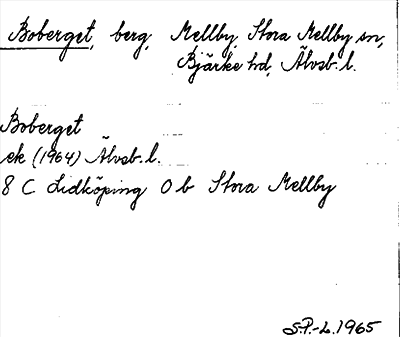 Boberget, berg, Mellby, Stora Mellby sn,
Bjärke hd, Älvsb. l.
Boberget
ek (1964) Älvsb. l.
8 C Lidköping 0 b Stora Mellby
S.P.-L. 1965